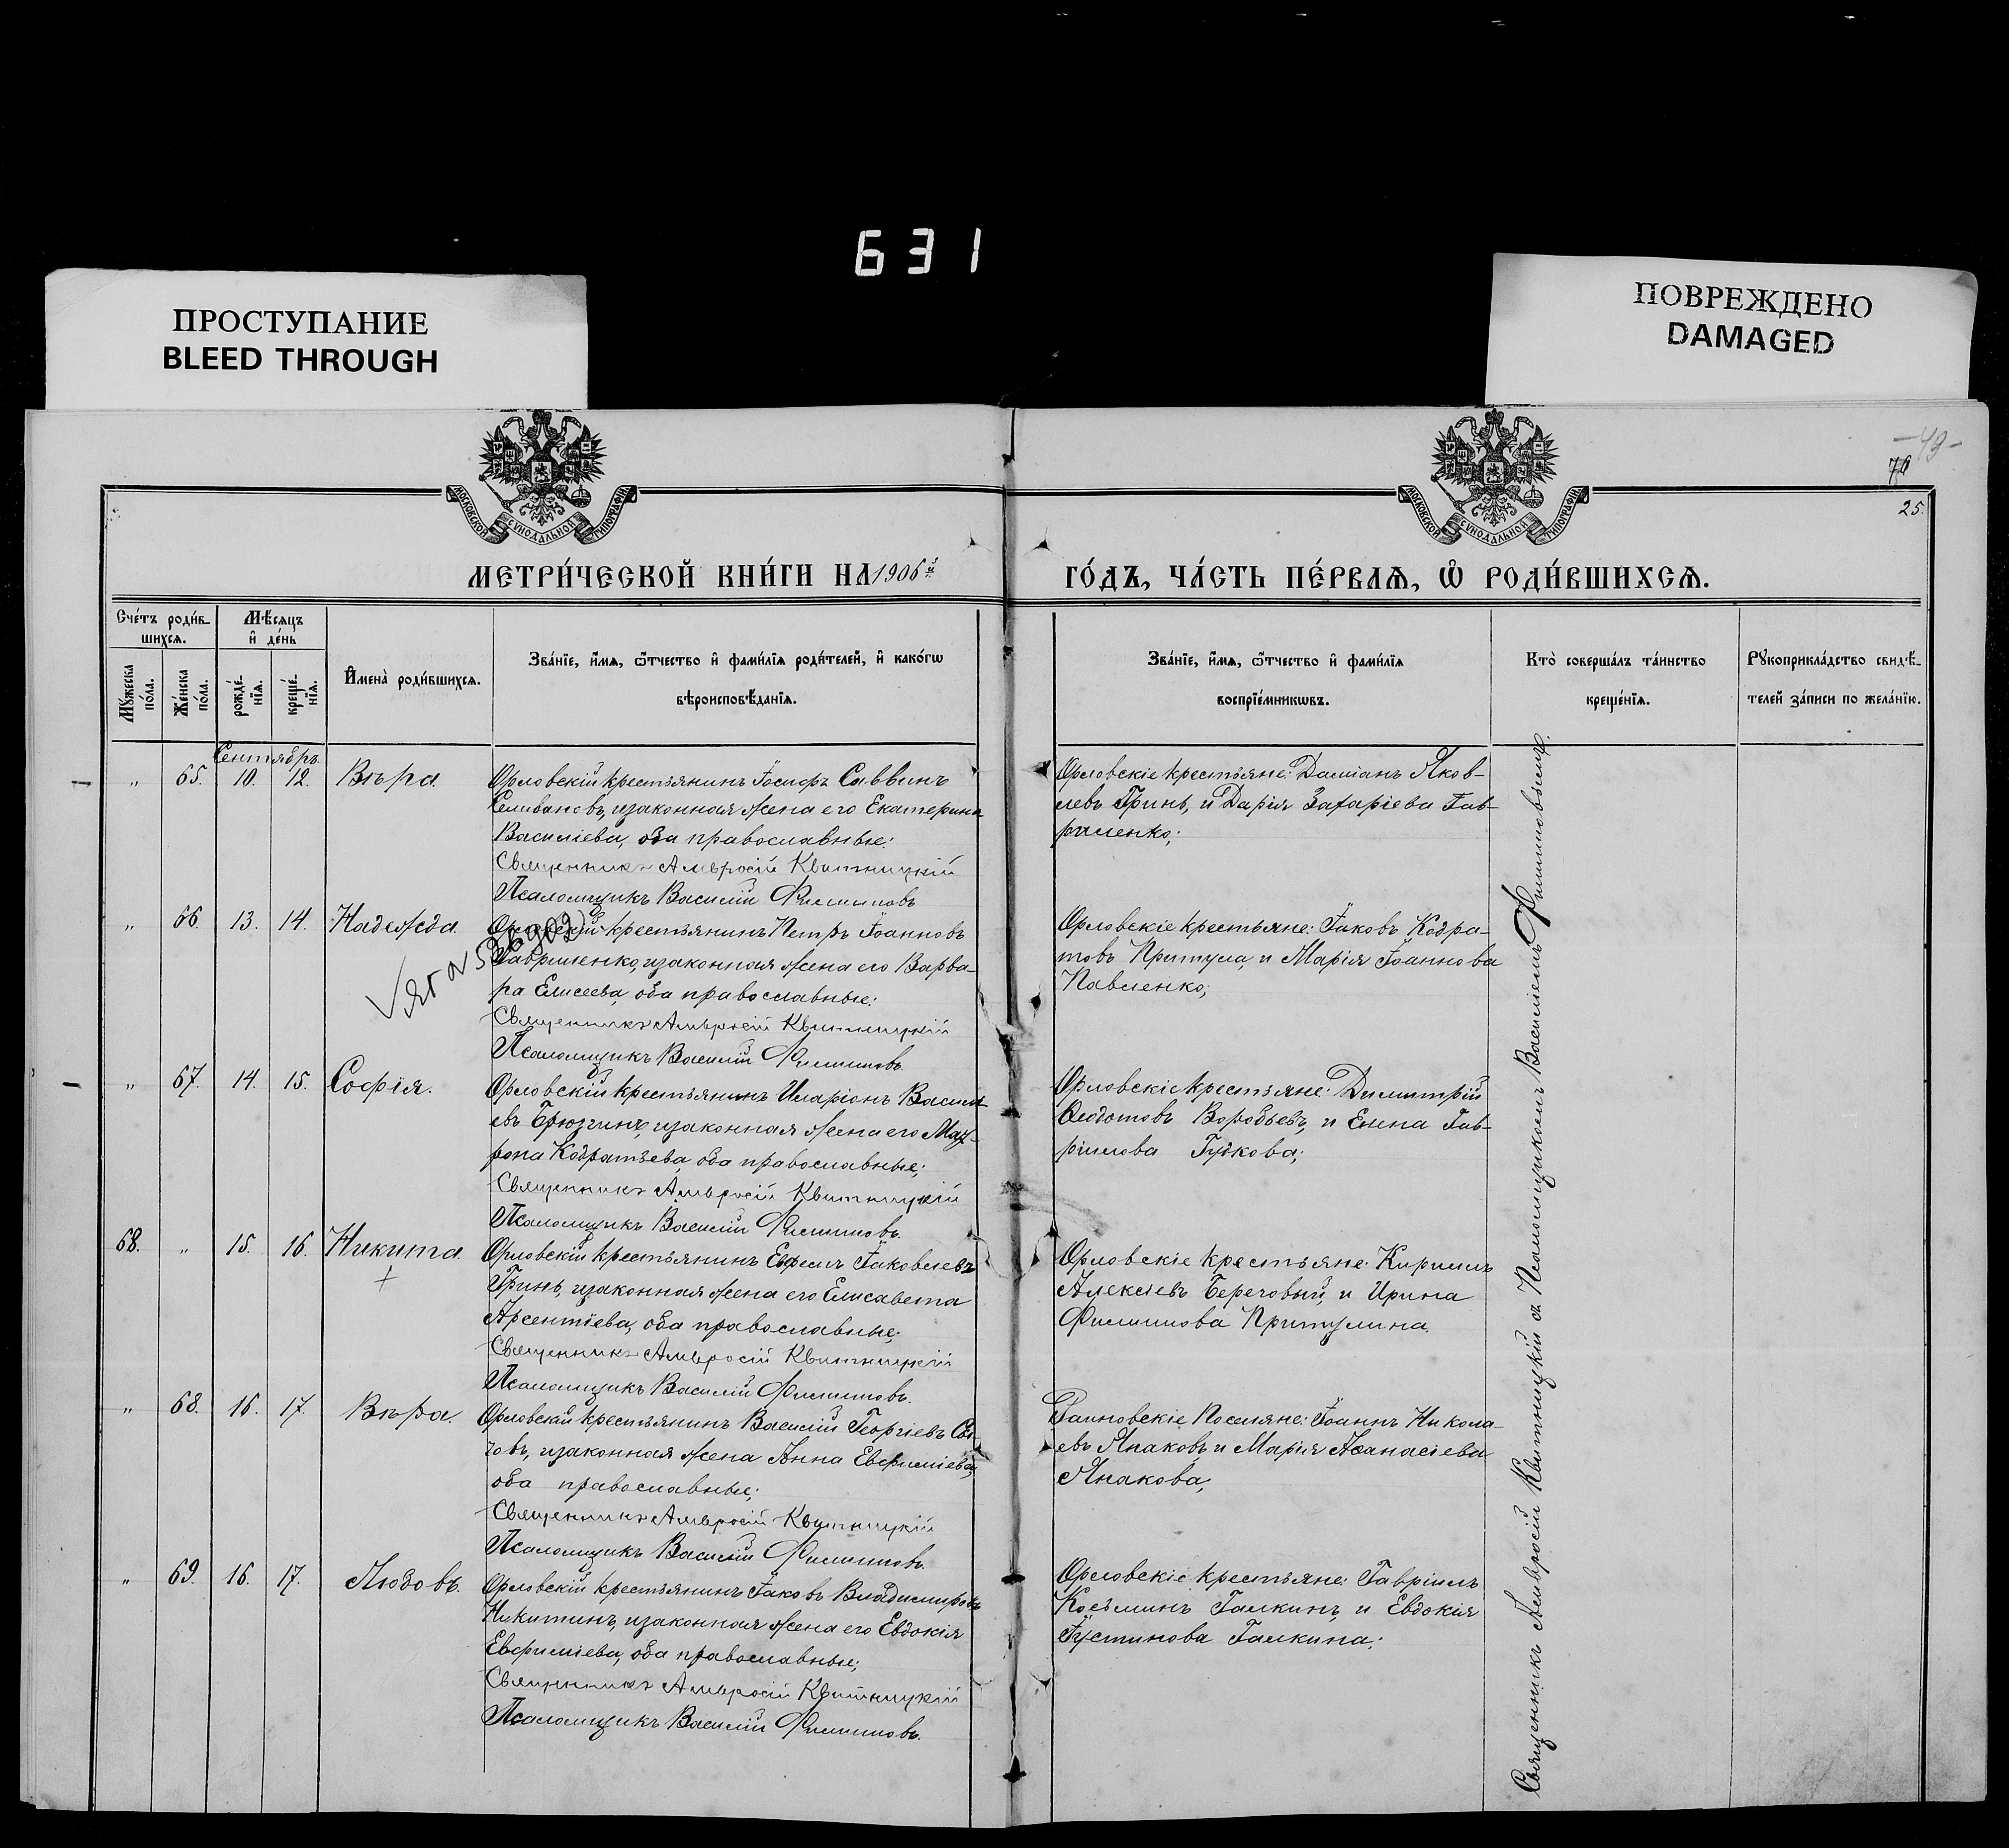 631
ПРОСТУПАНИЕ
BLEED THROUGH
ПОВРЕЖДЕНО
DAMAGED
-49-
25.
МОСКОВСКОЙ СѴНОДАЛЬНОЙ ТИПОГРАФІИ
МОСКОВСКОЙ СѴНОДАЛЬНОЙ ТИПОГРАФІИ
МЕТРИ́ЧЕСКОЙ КНИ́ГИ НА 1906й
ГО́ДЪ, ЧА́СТЬ ПЕ́РВАѦ, Ѡ҆ РОДИ́ВШИХСѦ.
Сче́тъ роди́в-
шихсѧ.
Мѣ́сѧцъ
и҆ де́нь
Мꙋ́жеска
по́ла.
Же́нска
по́ла.
рожде́-
нїѧ.
креще́-
нїѧ.
И҆мена̀ роди́вшихсѧ.
Зва́нїе, и҆́мѧ, ѻ҆́тчество и҆ фами́лїѧ роди́телей, и҆ како́гѡ
вѣроисповѣ́данїѧ.
Зва́нїе, и҆́мѧ, ѻ҆́тчество и҆ фами́лїѧ
воспрїе́мникѡвъ.
Кто̀ соверша́лъ та́инство
креще́нїѧ.
Рꙋкоприкла́дство свидѣ́-
телей за́писи по жела́нїю.
Сентябрь.
„ 65. 10. 12. Вѣра.
Орловскій крестьянинъ Іосифъ Саввинъ
Селивановъ, и законная жена его Екатерина
Василіева, оба православные:
Священникъ Амвросій Квитницкій
Псаломщикъ Василій Филиповъ
Орловскіе крестьяне: Даміанъ Яков-
левъ Гринь, и Дарія Захаріева Гав-
риленко;
„ 66. 13. 14. Надежда.
Орловскій крестьянинъ Петръ Іоанновъ
Гавриленко, и законная жена его Варва-
ра Елисеева, оба православные:
Священникъ Амвросій Квитницкій
Псаломщикъ Василій Филиповъ
Орловскіе крестьяне: Іаковъ Кодра-
товъ Притула, и Марія Іоаннова
Павленко;
„ 67. 14. 15. Софія.
Орловскій крестьянинъ Иларіонъ Васил-
евъ Брюзгинъ, и законная жена его Мат-
рона Кодратьева, оба православные;
Священникъ Амвросій Квитницкій
Псаломщикъ Василій Филиповъ.
Орловскіе крестьяне: Димитрій
Ѳедотовъ Воробьевъ, и Елена Гав-
рилова Гудкова;
68. „ 15. 16. Никита.
Орловскій крестьянинъ Ефремъ Іаковлевъ
Гринь, и законная жена его Елисавета
Арсентіева, оба православные;
Священникъ Амвросій Квитницкій
Псаломщикъ Василій Филиповъ.
Орловскіе крестьяне: Кирилъ
Алексіевъ Береговый, и Ирина
Филиппова Притулина.
„ 68. 16. 17. Вѣра.
Орловскій крестьянинъ Василій Георгіевъ
и законная жена Анна Евфиміева,
оба православные;
Священникъ Амвросій Квитницкій
Псаломщикъ Василій Филиповъ.
Поселяне: Іоаннъ Никола-
евъ и Марія Аѳанасіева
„ 69. 16. 17. Любовь.
Орловскій крестьянинъ Іаковъ Владимировъ
Никитинъ, и законная жена его Евдокія
Евфиміева, оба православные;
Священникъ Амвросій Квитницкій
Псаломщикъ Василій Филиповъ.
Орловскіе крестьяне: Гавріилъ
Косьминъ Галкинъ, и Евдокія
Іустинова Галкина;
Священникъ Амвросій Квитницкій съ Псаломщикомъ Василіемъ Филиповымъ.